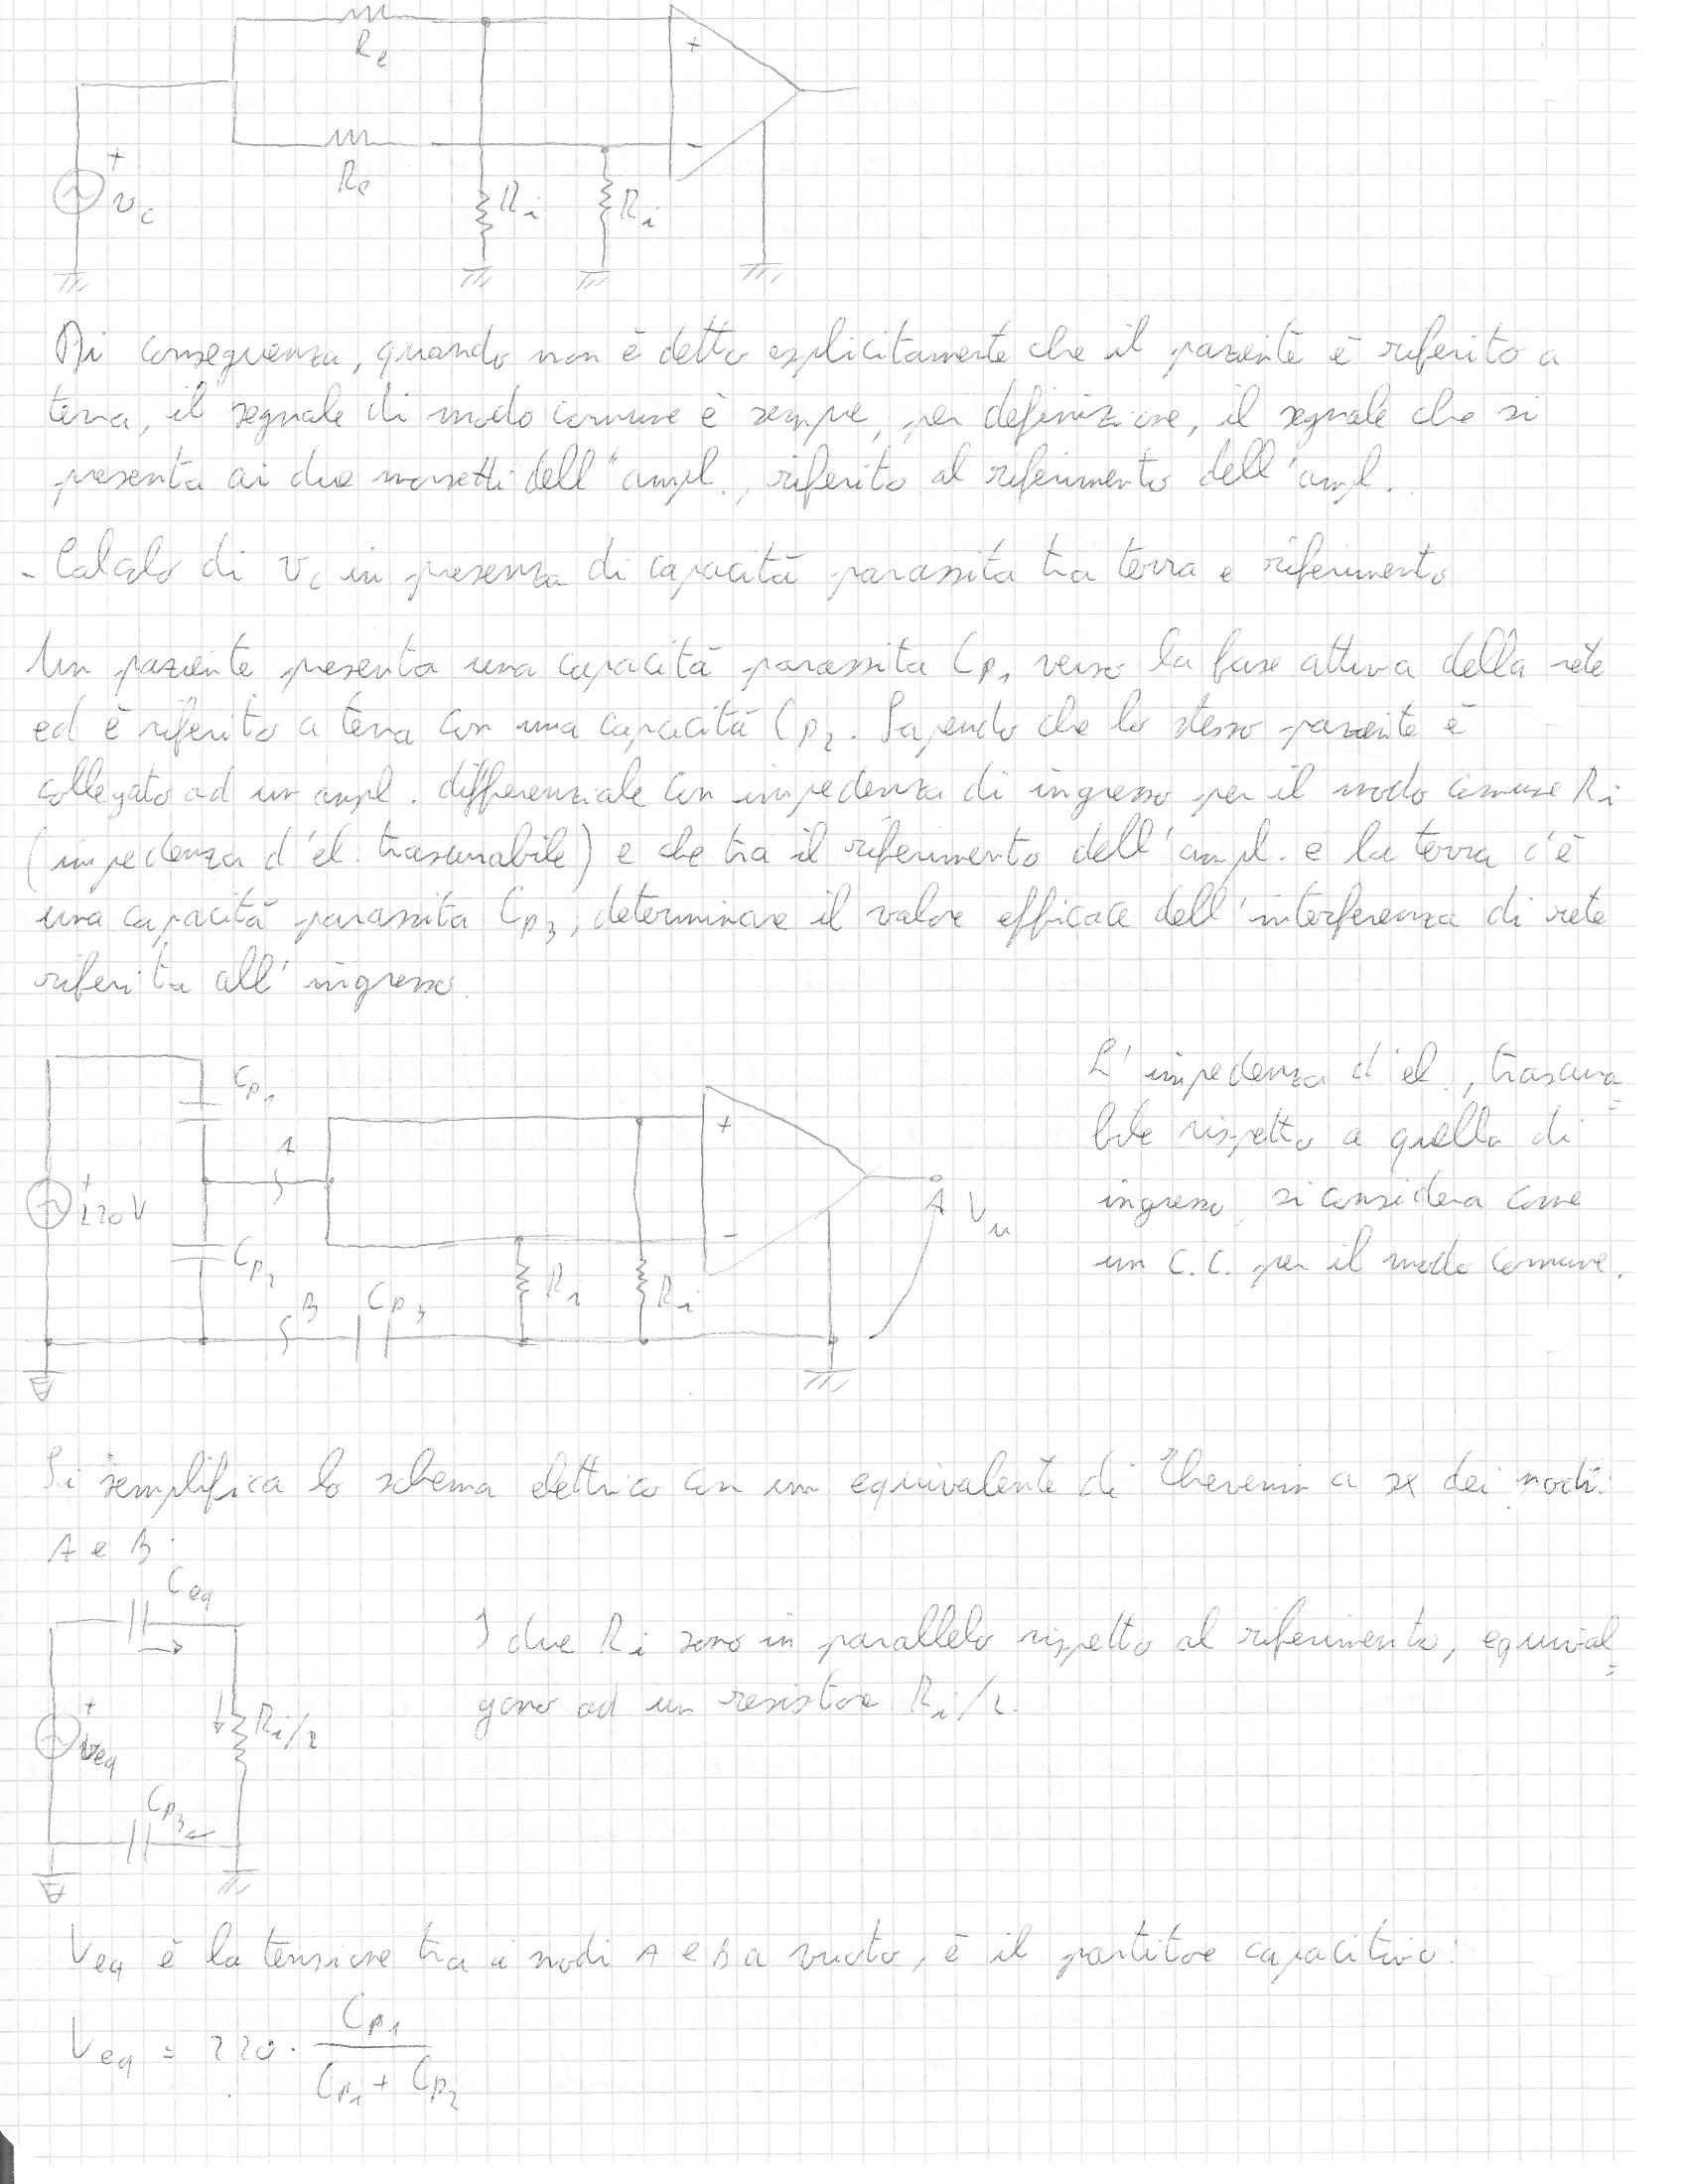 +
Re
-
Re
+
vc
Ri
Ri
Di conseguenza, quando non è detto esplicitamente che il paziente è riferito a
terra, il segnale di modo comune è sempre, per definizione, il segnale che si
presenta ai due morsetti dell'ampl., riferito al riferimento dell'ampl.
- Calcolo di vc in presenza di capacità parassita tra terra e riferimento
Un paziente presenta una capacità parassita Cp1 verso la fase attiva della rete
ed è riferito a terra con una capacità Cp2. Sapendo che lo stesso paziente è
collegato ad un ampl. differenziale con impedenza di ingresso per il modo comune Ri
(impedenza d'el. trascurabile) e che tra il riferimento dell'ampl. e la terra c'è
una capacità parassita Cp3, determinare il valore efficace dell'interferenza di rete
riferita all'ingresso.
Cp1
A
+
+
220V
Cp2
-
Vu
B
Cp3
Ri
Ri
L'impedenza d'el., trascura=
bile rispetto a quella di
ingresso, si considera come
un C.C. per il modo comune.
Si semplifica lo schema elettrico con un equivalente di Thevenin a sx dei nodi
A e B:
Ceq
+
Veq
Ri/2
Cp3
I due Ri sono in parallelo rispetto al riferimento, equival=
gono ad un resistore Ri/2.
Veq è la tensione tra i nodi A e B a vuoto, è il partitore capacitivo:
Veq = 220 · Cp1 / (Cp1 + Cp2)